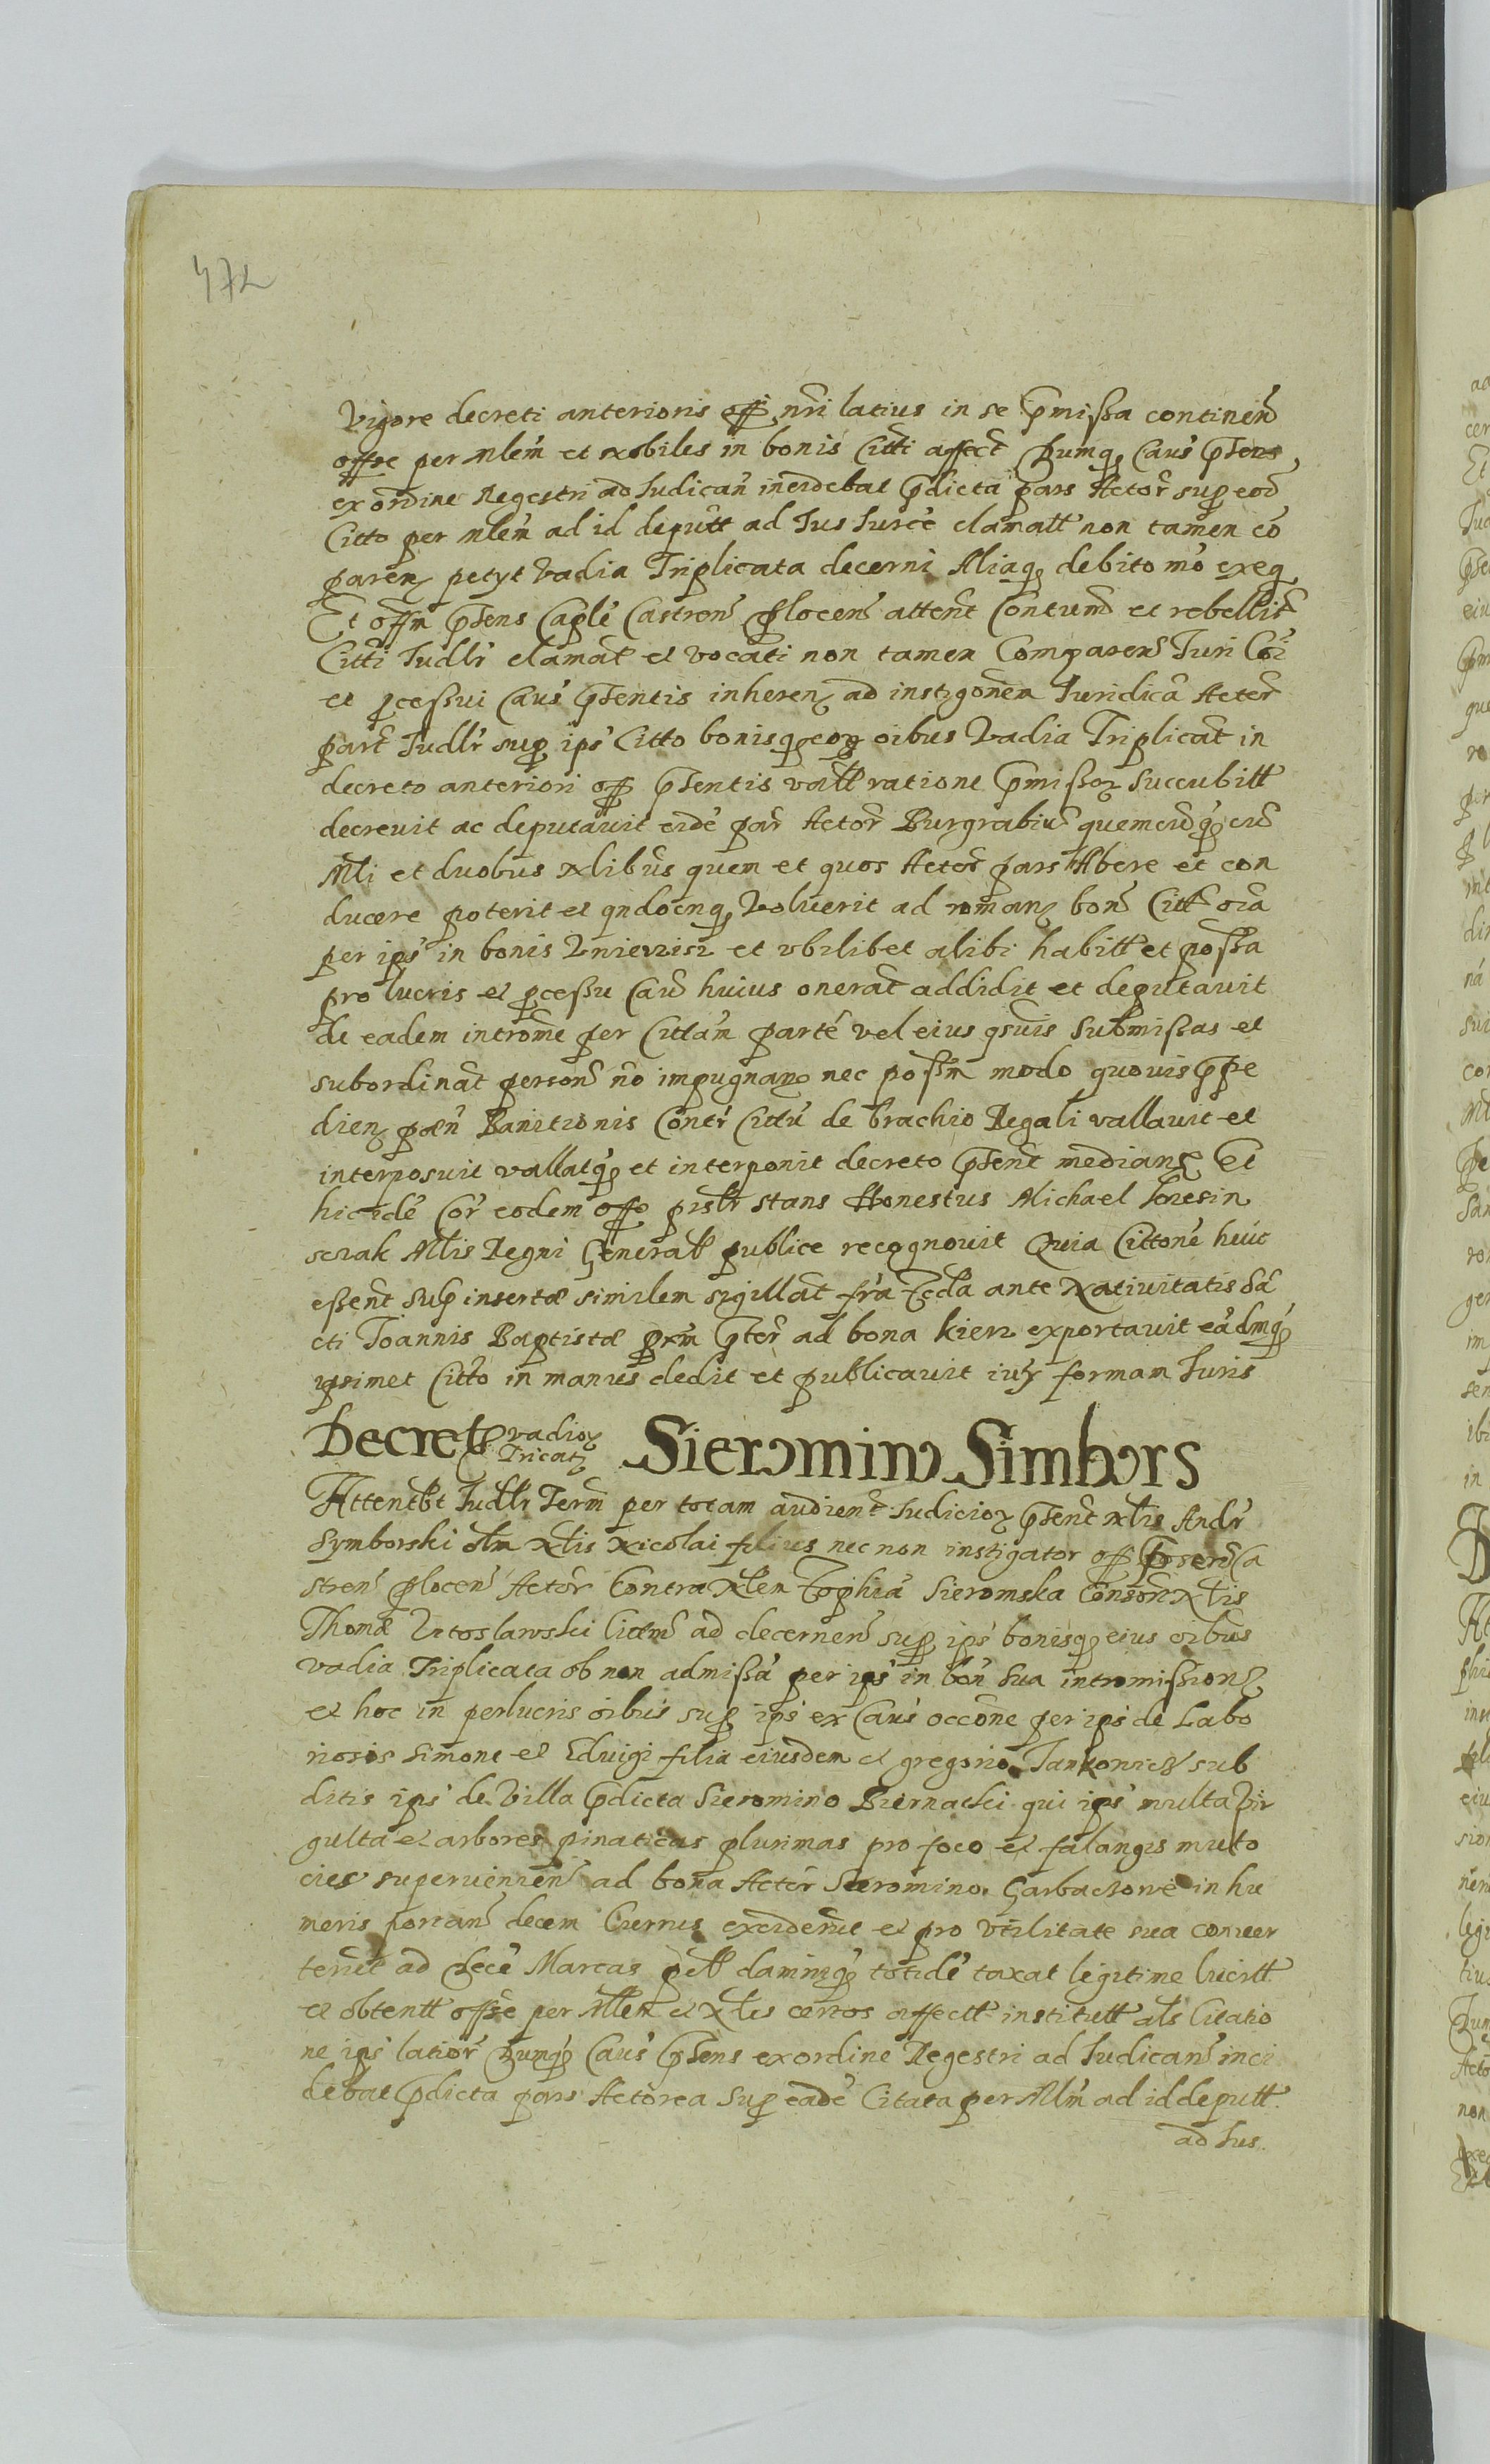 472
Vigore decreti anterioris offi nri latius in se pmissa continen
offse per Mlem et nobiles in bonis Citti affect Dumq Caus psens
ex ordine Regestri ad Iudican incidebat pdicta pars Actor sup eod
Citto per Mlem ad id deputt ad Ius Surce clamatt non tamen co
paren petyt vadia Triplicata decerni Aliaq debito mo exeq
Et offm psens Caple Castren Plocen attent Contum et rebellit
Citti Iudlr clamat et vocati non tamen Comparen Iuri Coi
et pcessui Caus psentis inheren ad instigonem Iuridica Actor
part Iudlr sup ips Citto bonisq eoz oibus Vadia Triplicat in
decreto anteriori off psentis vallt ratione pmissoz succubitt
decrevit ac deputavit eide par Actor Burgrabiu quemcuq cu
Mli et duobus Nlibus quem et quos Actor pars Hbere et con
ducere poterit et qndocnq Voluerit ad roman bon Citt oia
per ips in bonis Kniewisi et ubilibet alibi habitt et possa
pro lucris et pcessu Caus huius onerat addidit et deputavit
de eadem introme per Cittam parte vel eius qsuis Submissas et
subordinat person no impugnan nec possm modo quovis ppe
dien poen Banitionis Contr Cittu de brachio Regali vallavit et
interposuit vallatq et interponit decreto psent median Et
hic ide Cor eodem offo pslr stans Honestus Michael
serak Mlis Regni General publice recognovit Quia Cittone huic
essent sup insertae similem sigillat fra ante Nativitatis Sa
cti Ioannis Baptistae pxm pter ad bona kien exportavit eadmq
ipsimet Citto in manus dedit et publicavit iux formam Iuris
Decret vadioz Tricat Sieromino Simbors
Attentbt Iudlr Term per totam audient Iudicioz psent Nlis Andr
Symborski olm Nlis Nicolai filius nec non instigator off pserd Ca
stren Plocen Actor Contra Nlem Zophia Sieromska Conson Nlis
Thomae Vtoslawski Citem ad decernen sup ips bonisq eius oibus
vadia Triplicata ob non admissa per ips in bon sua intromission
et hoc in perlucris oibus sup ips ex Caus occone per ips de Labo
riosis Simone et Eduigi filia eiusdem et gregorio Jankowicz sub
ditis ips de Villa pdicta Sieromino Biernatki qui ips multa Vir
gulta et arbores pinaticas plurimas pro foco et falangis multo
cies supervenien ad bona Actor Sieromino Garbaczowe in hu
meris portan decem Currus exciderut et pro utilitate sua conver
terut ad dece Marcas pell damniq totide taxat legitime lucrtt
et obtentt offse per Mlem et Nles certos affectt institutt als Citatio
ne ips latior Dumq Caus psens ex ordine Regestri ad Iudican inci
debat pdicta pars Actorea Sup eade Citata per Mlm ad id deputt
ad Ius